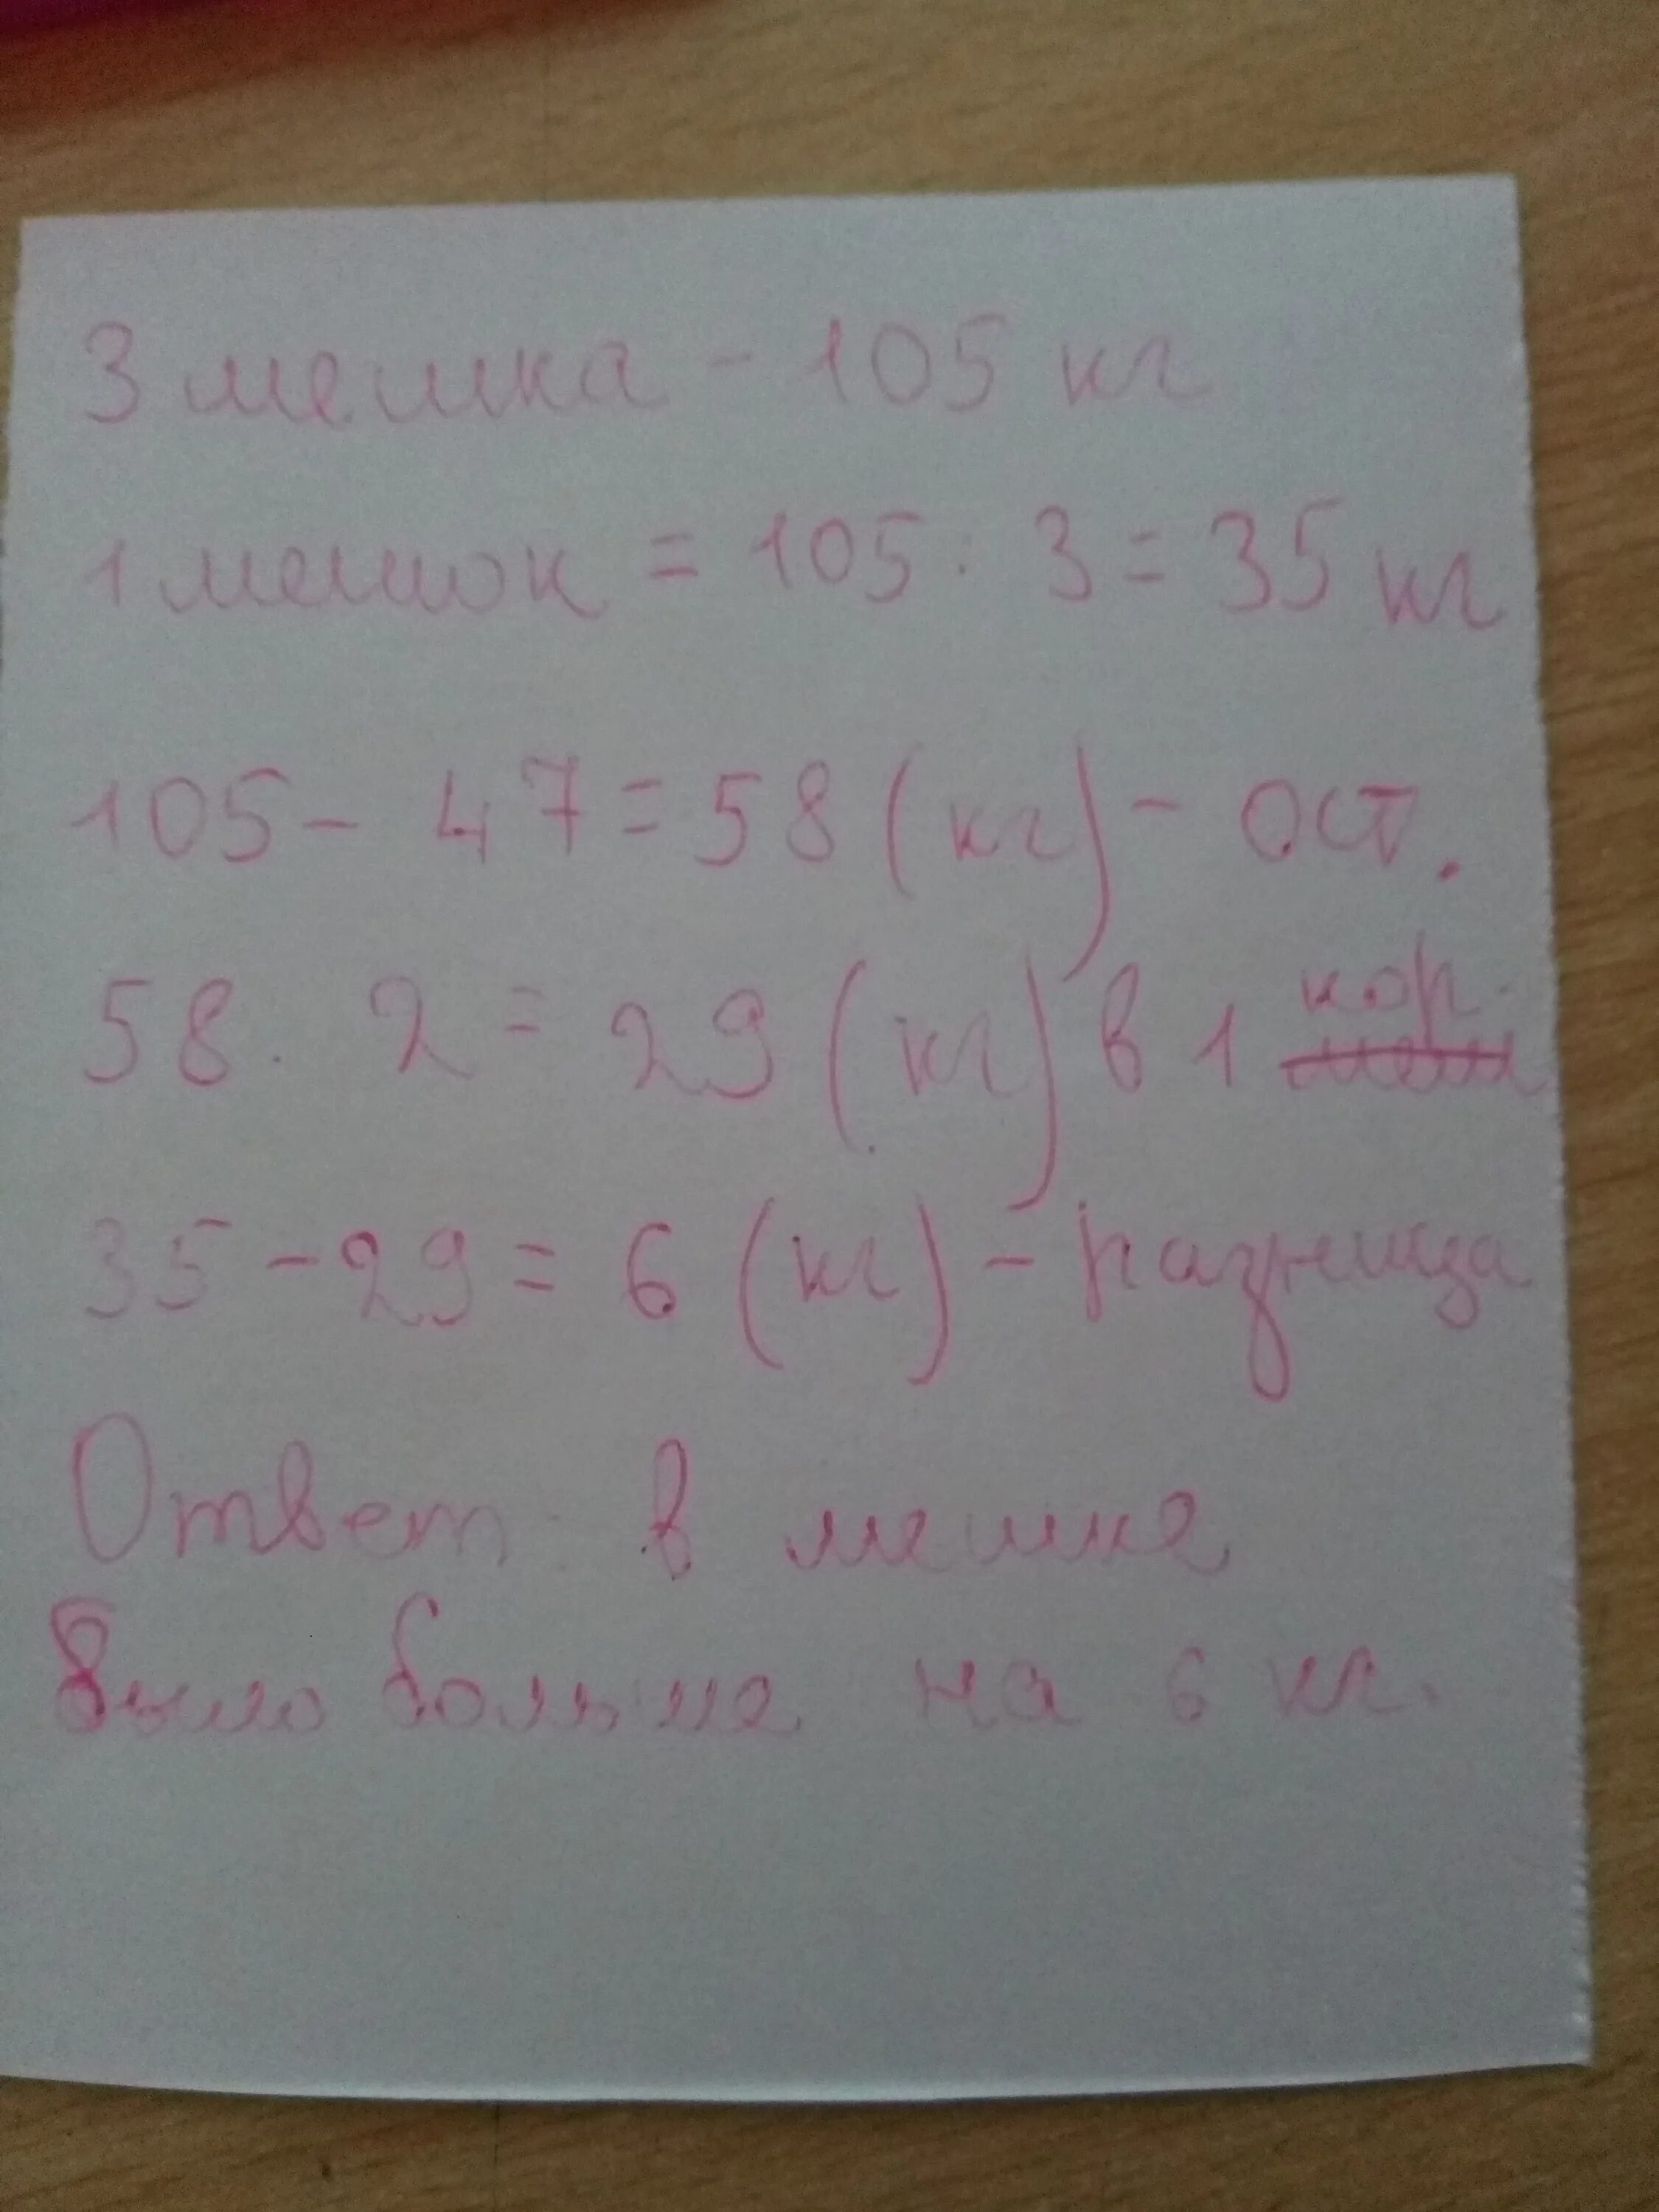 3 мешка - 105 кг
1 мешок = 105 : 3 = 35 кг
105 - 47 = 58 (кг) - ост.
кор.
58 : 2 = 29 (кг) в 1 меш
35 - 29 = 6 (кг) - разница
Ответ: в мешке
было больше на 6 кг.